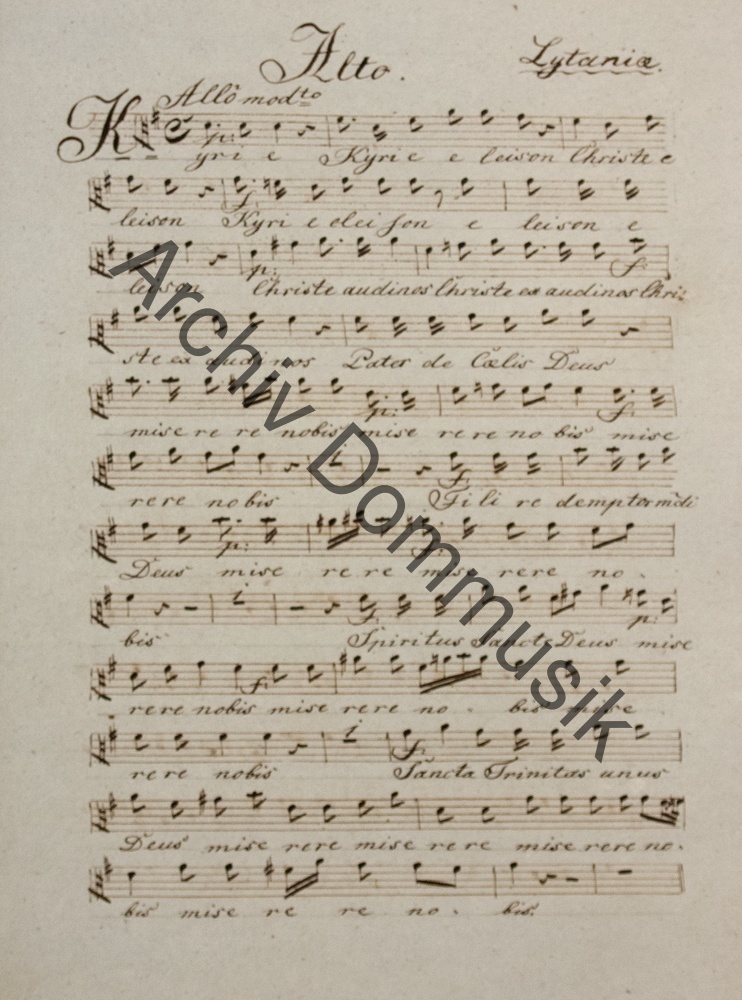 Alto.
Lytaniæ.
Allô modto
Kyri e Kyri e e leison Christe e
leison Kyri e elei son e leison e
leison Christe audinos Christe ex audinos Chri:
ste ex audi nos Pater de Cœlis Deus
mise re re nobis mise rere no bis mise
rere nobis Fi li re demptor mūdi
Deus mise re re mise rere no -
bis Spiritus Sancte Deus mise
rere nobis mise rere no - bis mise
re re nobis Sancta Trinitas unus
Deus mise rere mise re re mise rere no -
bis mise re re no - bis.
Archiv Dommusik